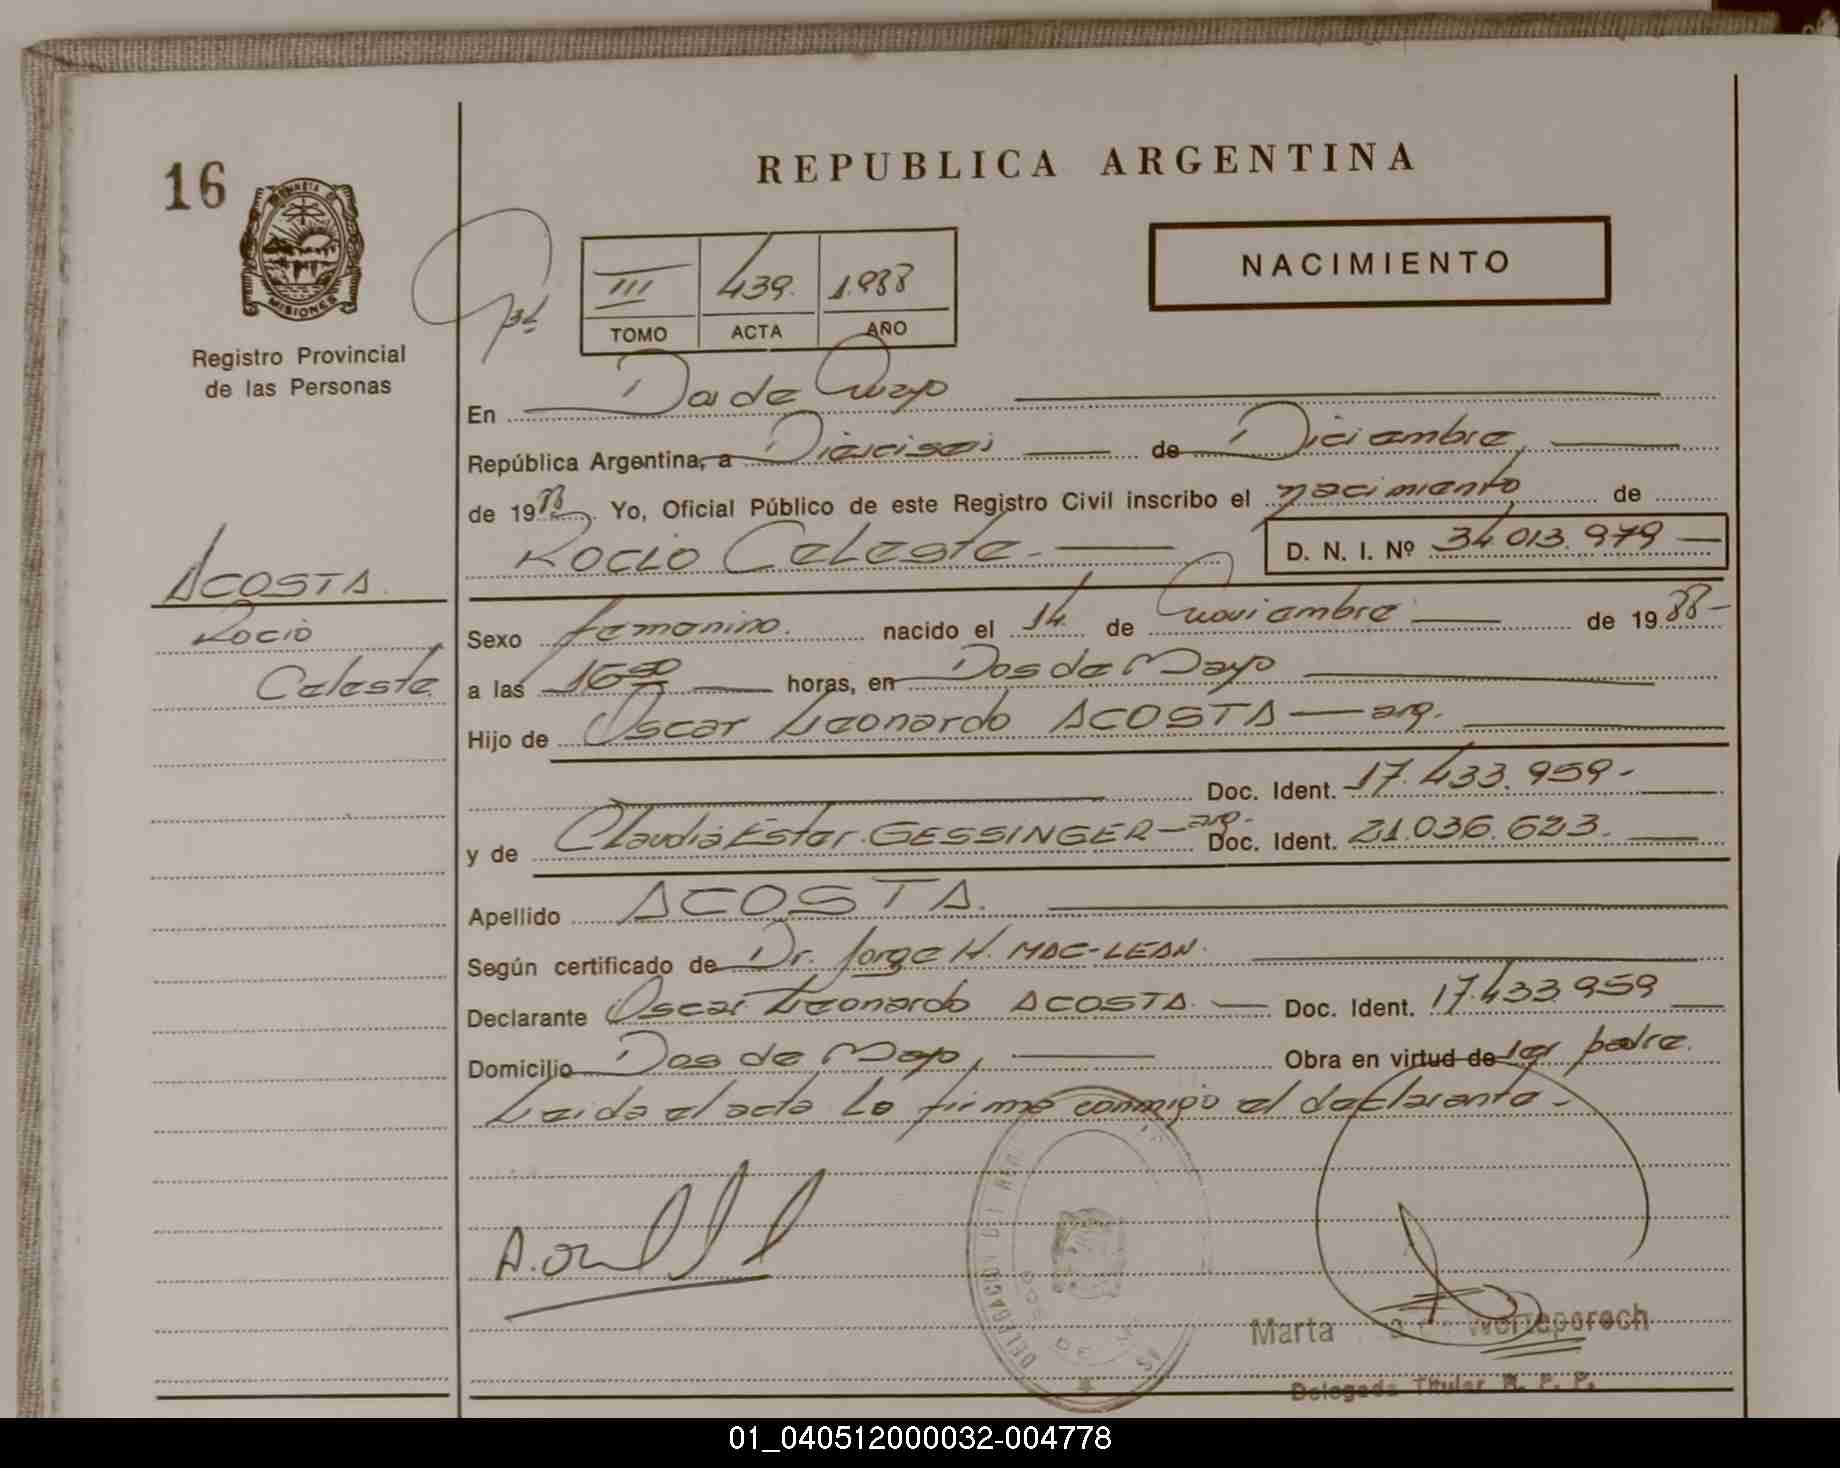 16
REPUBLICA ARGENTINA
NACIMIENTO
MISIONES
Registro Provincial
de las Personas
III 439. 1.988
TOMO ACTA AÑO
En Dos de Mayo
República Argentina, a Dieciseis de Diciembre
de 1988 Yo, Oficial Público de este Registro Civil inscribo el nacimiento de
Rocio Celeste.- D. N. I. Nº 34.013.979
ACOSTA.
Rocio
Celeste
Sexo femenino. nacido el 14 de noviembre de 1988-
a las horas, en Dos de Mayo
Hijo de Oscar Leonardo ACOSTA - arg.
Doc. Ident. 17.433.959-
y de Claudia Ester GESSINGER - arg. Doc. Ident. 21.036.623.
Apellido ACOSTA.
Según certificado de Dr. Jorge H. MAC-LEAN.
Declarante Oscar Leonardo ACOSTA. Doc. Ident. 17.433.959
Domicilio Dos de Mayo, Obra en virtud de ser padre.
Leida el acta la firma conmigo el declarante.-
Marta
Delegada Titular R. P. P.
01_040512000032-004778